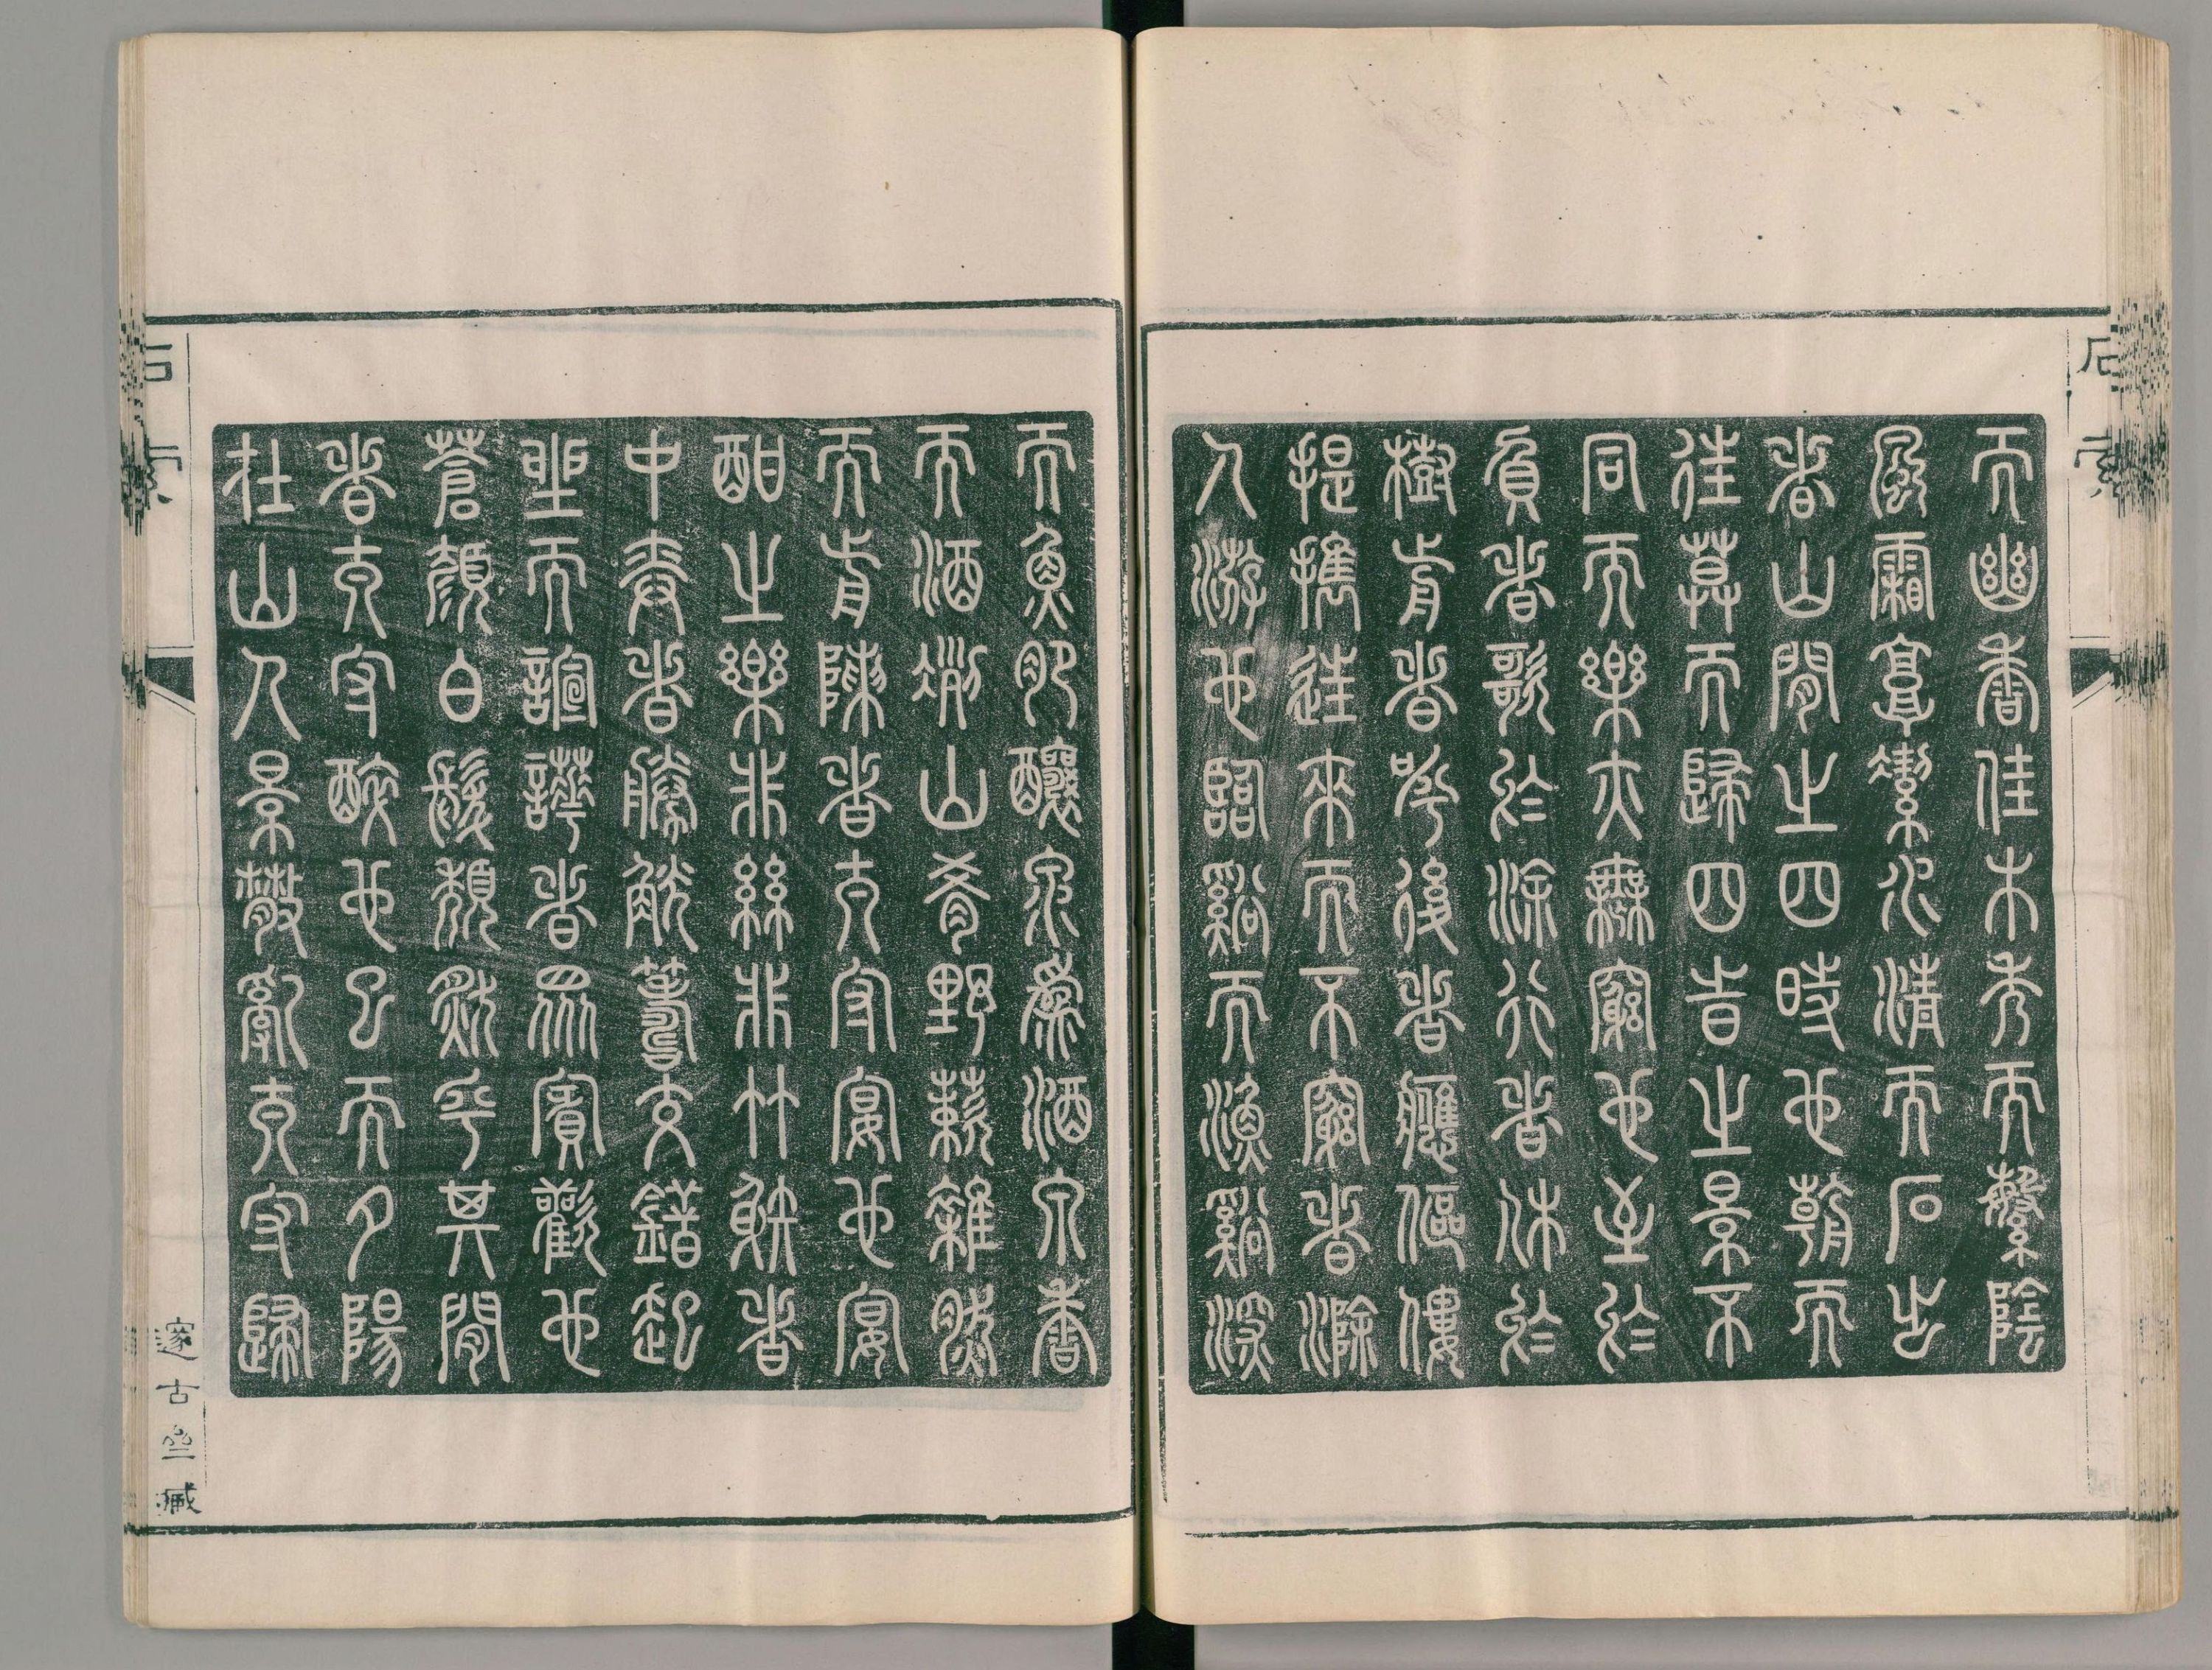 石索
而幽香佳木秀而繁陰
風霜高絜水清而石出
者山閒之四時也朝而
往莫而歸四旹之景不
同而樂亦無窮也至於
負者歌於涂行者休於
樹前者呼後者應傴僂
提攜往來而不窮者滁
人游也臨谿而漁谿深
而魚肥釀泉爲酒泉香
而酒洌山肴野蔌雜然
而前陳者太守宴也宴
酣之樂非絲非竹射者
中奕者勝觥籌交錯起
坐而諠譁者眾賓歡也
蒼顏白髮頹然乎其閒
者太守醉也已而夕陽
在山人景散亂太守歸
石索
邃古齋藏